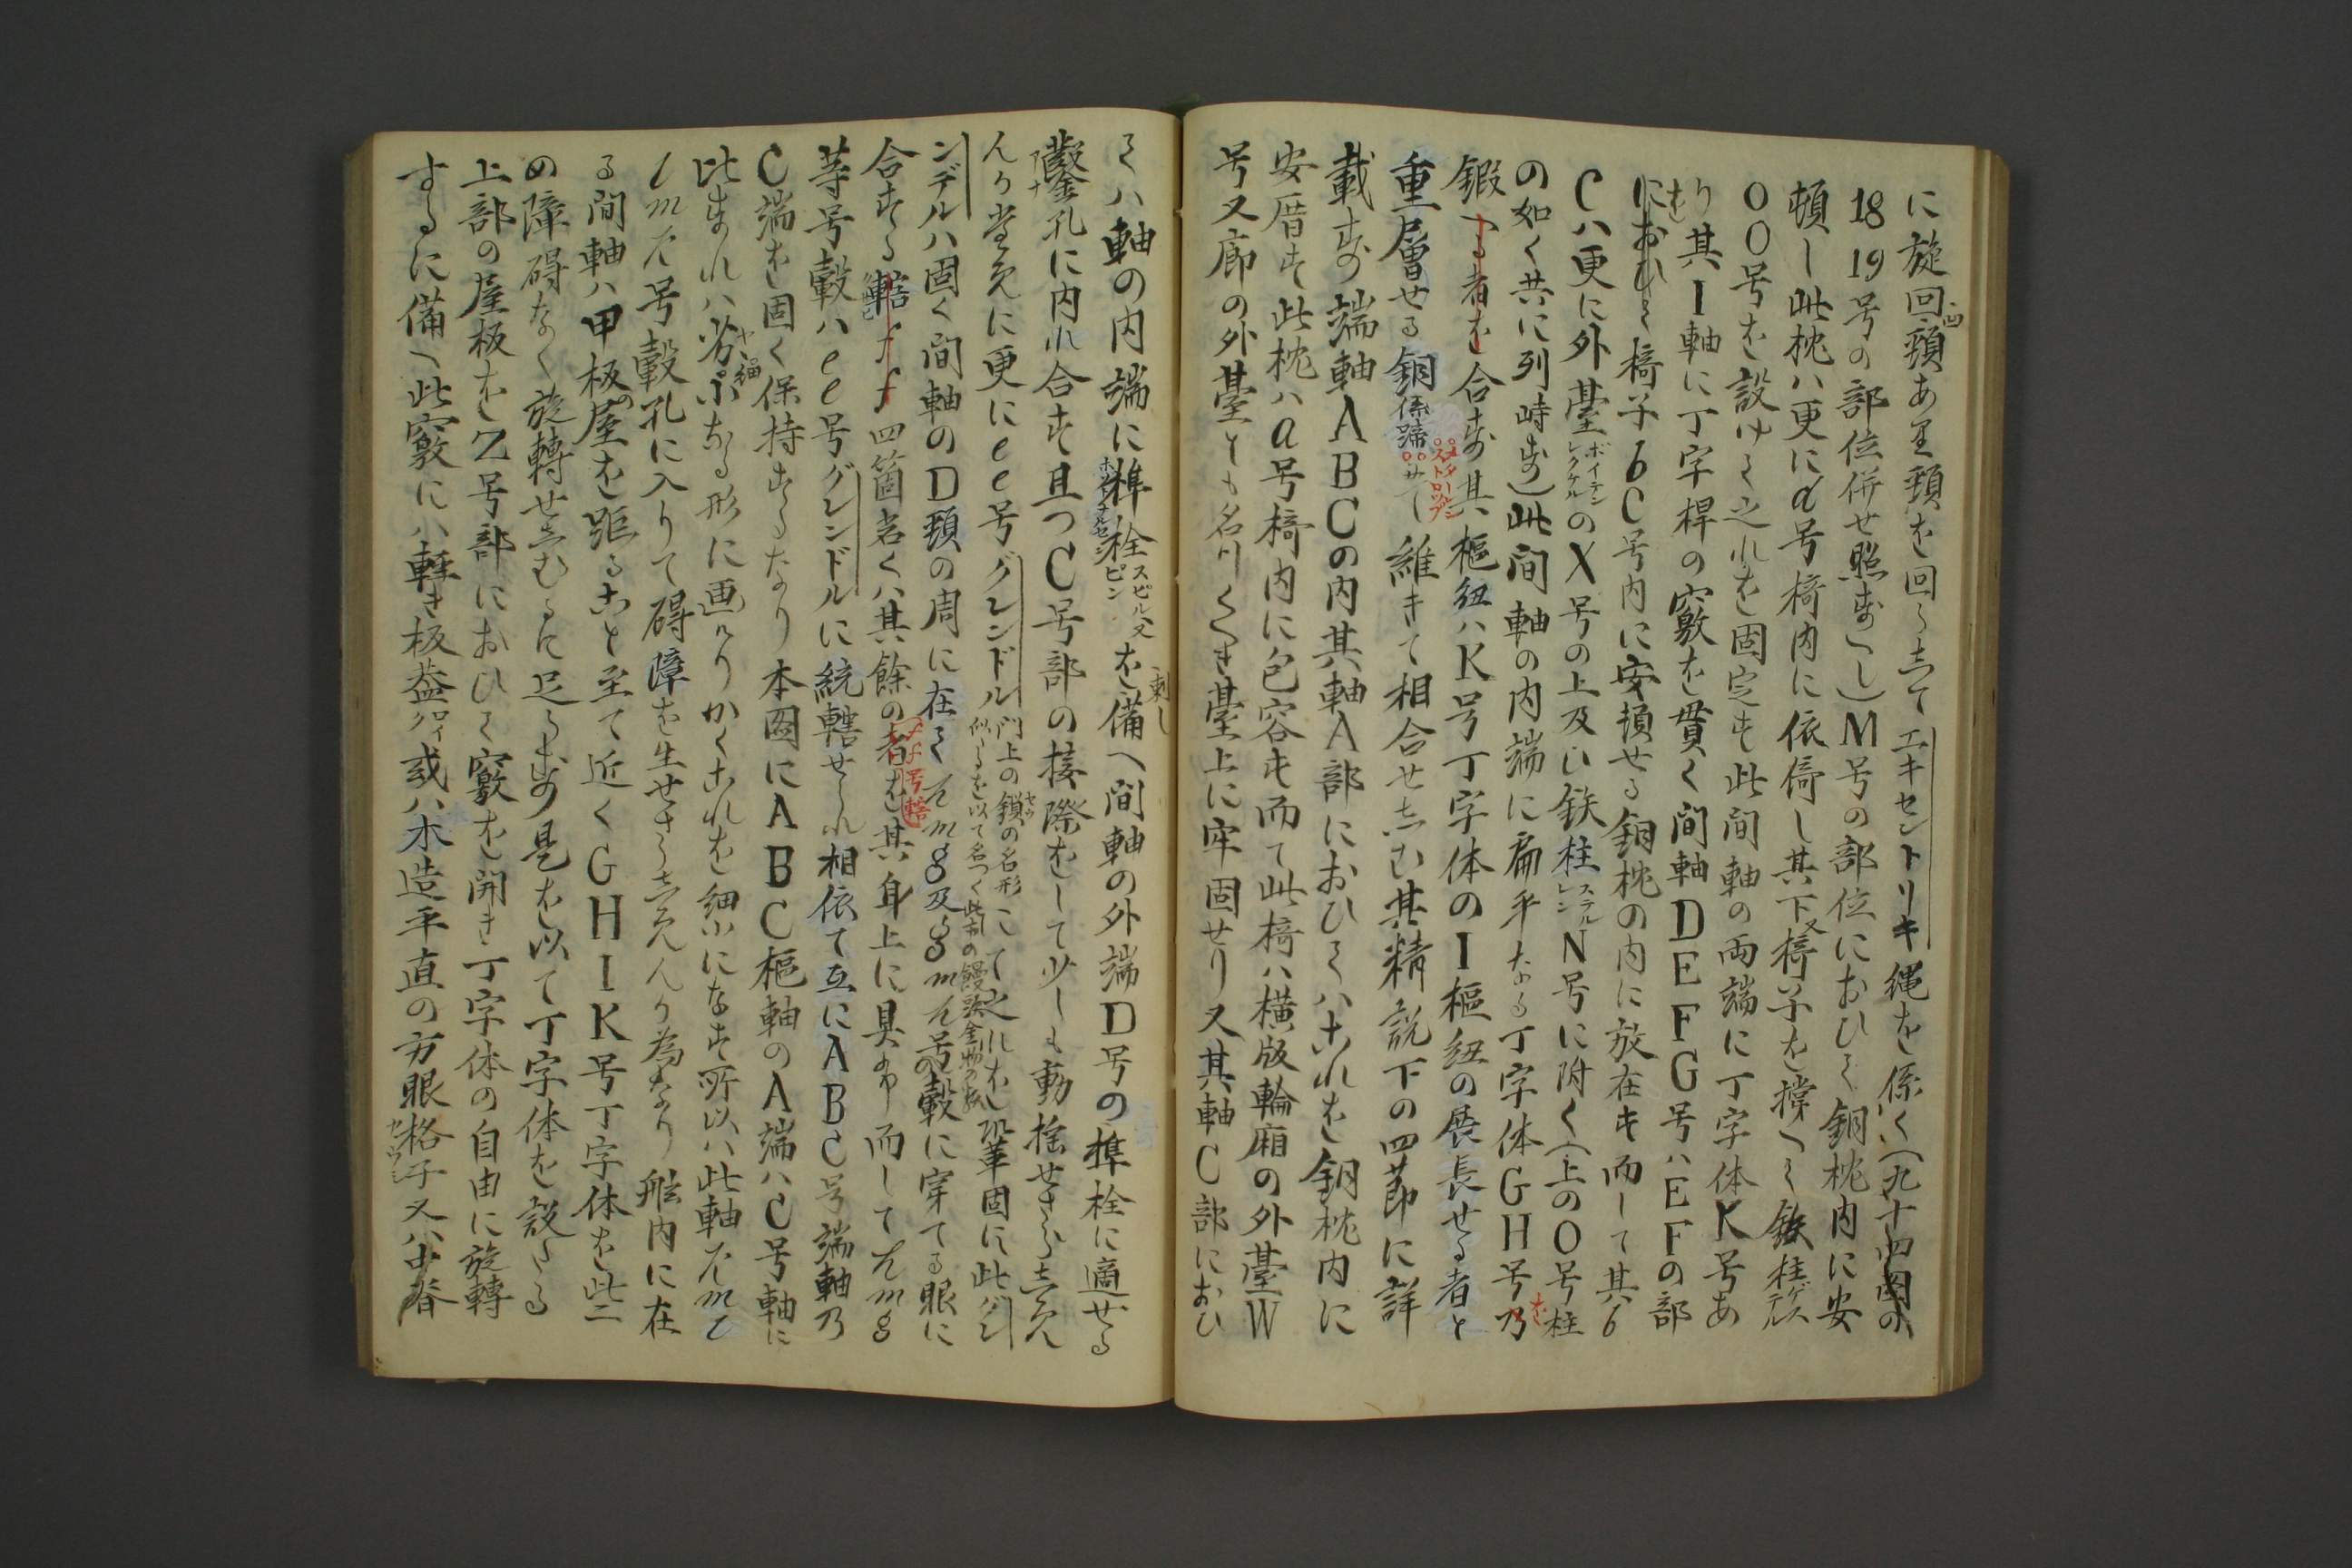 に旋回頸あり頸を回らして エキセントリキ 縄を係く(九十四圖の
18 19号の部位併せ照すへし)M号の部位におひて銅枕内に安
頓し此枕ハ更にa号㮣内に依倚し其下又㮣子を撐へて鉄柱
OO号を設けて之れを固定す此間軸の両端に丁字体K号あ
り其I軸に丁字桿の竅を貫く間軸DEFG号ハEFの部
におひて㮣子bC号内に安頓せる銅枕の内に放在す而して其b
Cハ更に外䑓ボイテンのX号の上及ひ鉄柱N号に附く(上のO号柱
の如く共に列峙す)此間軸の内端に扁平なる丁字体GH号乃
鍜 る者を合す其樞紐ハK号丁字体のI樞紐の展長せる者と
重層せる銅 維きて相合せしむ其精説下の四莭に詳
載す端軸ABCの内其軸A部におひてハこれを銅枕内に
安厝す此枕ハa号㮣内に包容す而て此㮣ハ横版輪廂の外䑓W
号又廊の外䑓とも名つくへき䑓上に牢固せり又其軸C部におひ
てハ軸の内端に榫栓スピル又ピンを備へ間軸の外端D号の榫栓に適せる
鑿孔に内れ合す且つC号部の接際をして少しも動揺せさらしめん
んか為めに更にee号グレンドル門上の鎖の名形似たるを以て名つく にて之れを鞏固に此グレ
ンデルハ固く間軸のD頸の周に在て g及g 号の轂に穿てる眼に
合する轄ff四箇若くハ其餘の者を其身上に具ふ而して
等号轂ハee号グレンドルに統轄せられ相依て互にABC号端軸乃
C端を固く保持するなり 本図にABC樞軸のA端ハC号軸に
比すれハ 形に画けりかくこれを細小になす所以ハ此軸
号轂孔に入りて碍障を生せさらしめんか為なり舩内に在
る間軸ハ甲板の屋を距ること至て近くGHIK号丁字体を此二
の障碍なく旋轉せしむるに足る 是を以て丁字体を設くる
上部の屋板をZ号部におひて竅を開き丁字体の自由に旋轉
するに備へ此竅にハ輕き板蓋 或ハ木造平直の方眼格子又ハ